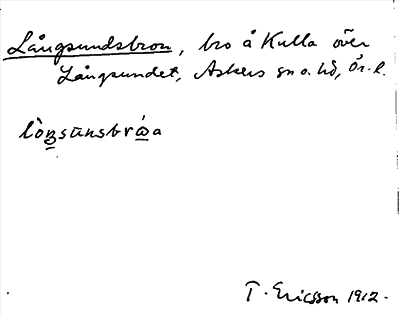 Långsundsbron, bro å Kulla över
Långsundet, Askers sn o. hd, Ör. l.
lòꞑsūnsbrώ̲a
T. Ericsson 1912.